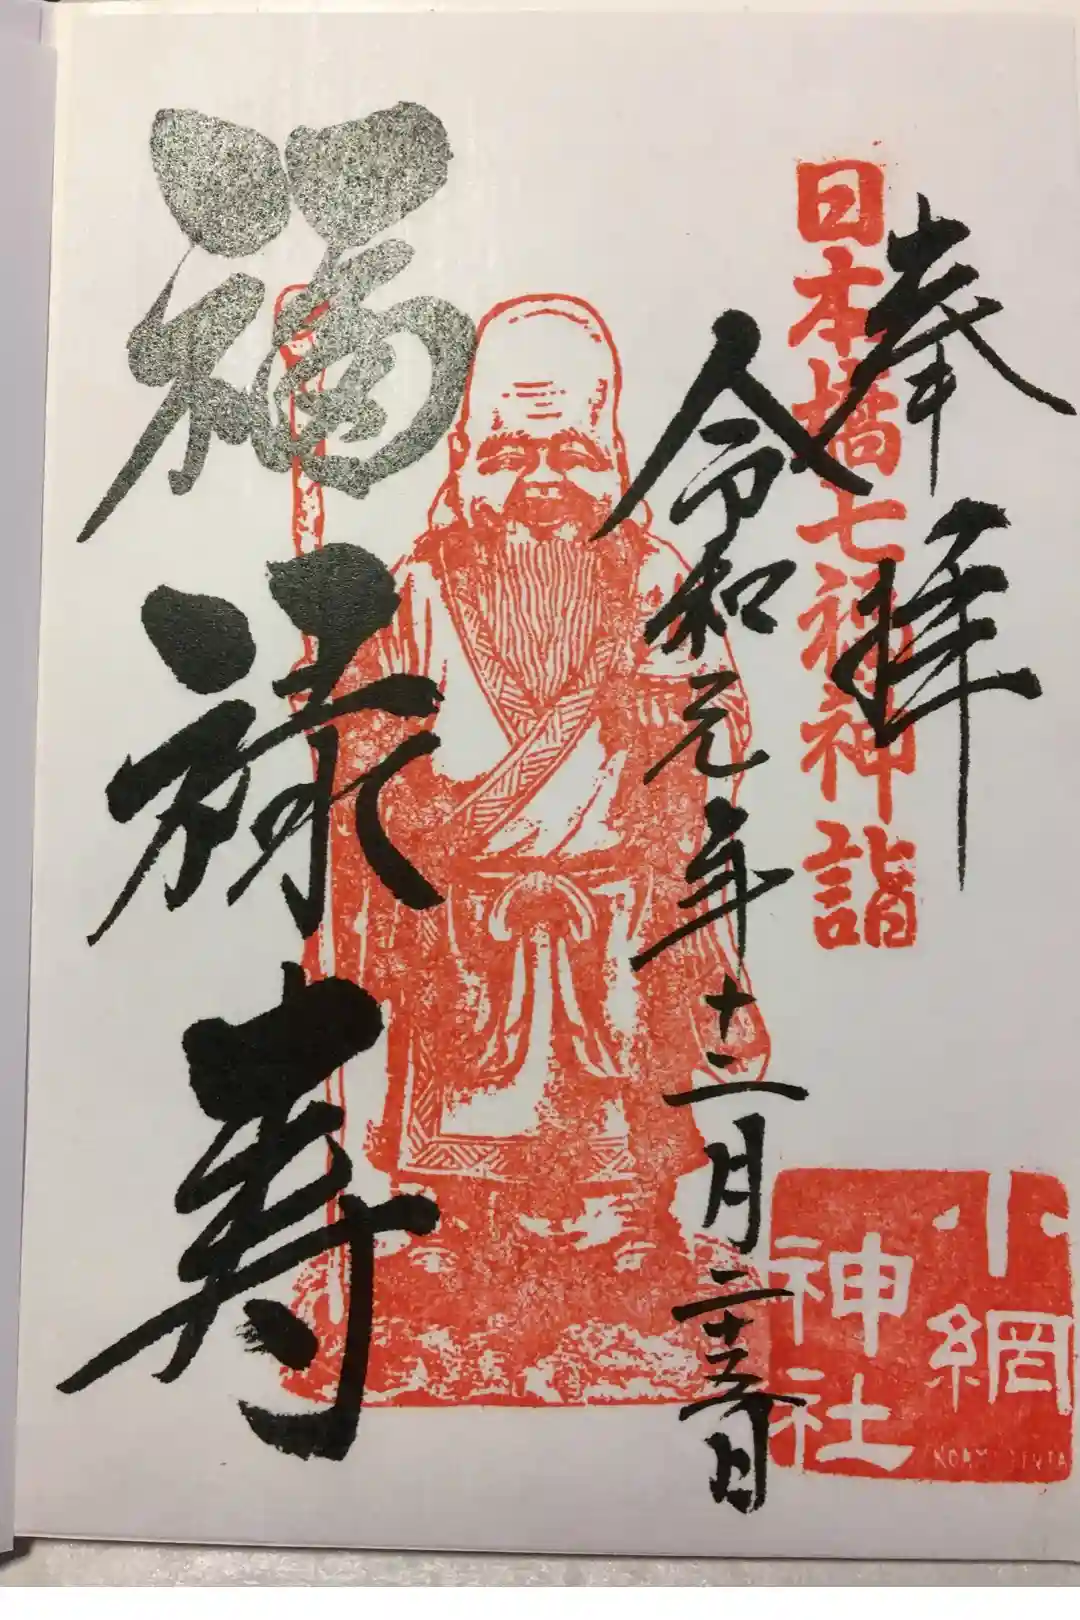 奉拝
日本橋七福神詣
令和元年十二月二十五日
福禄寿
小網
神社